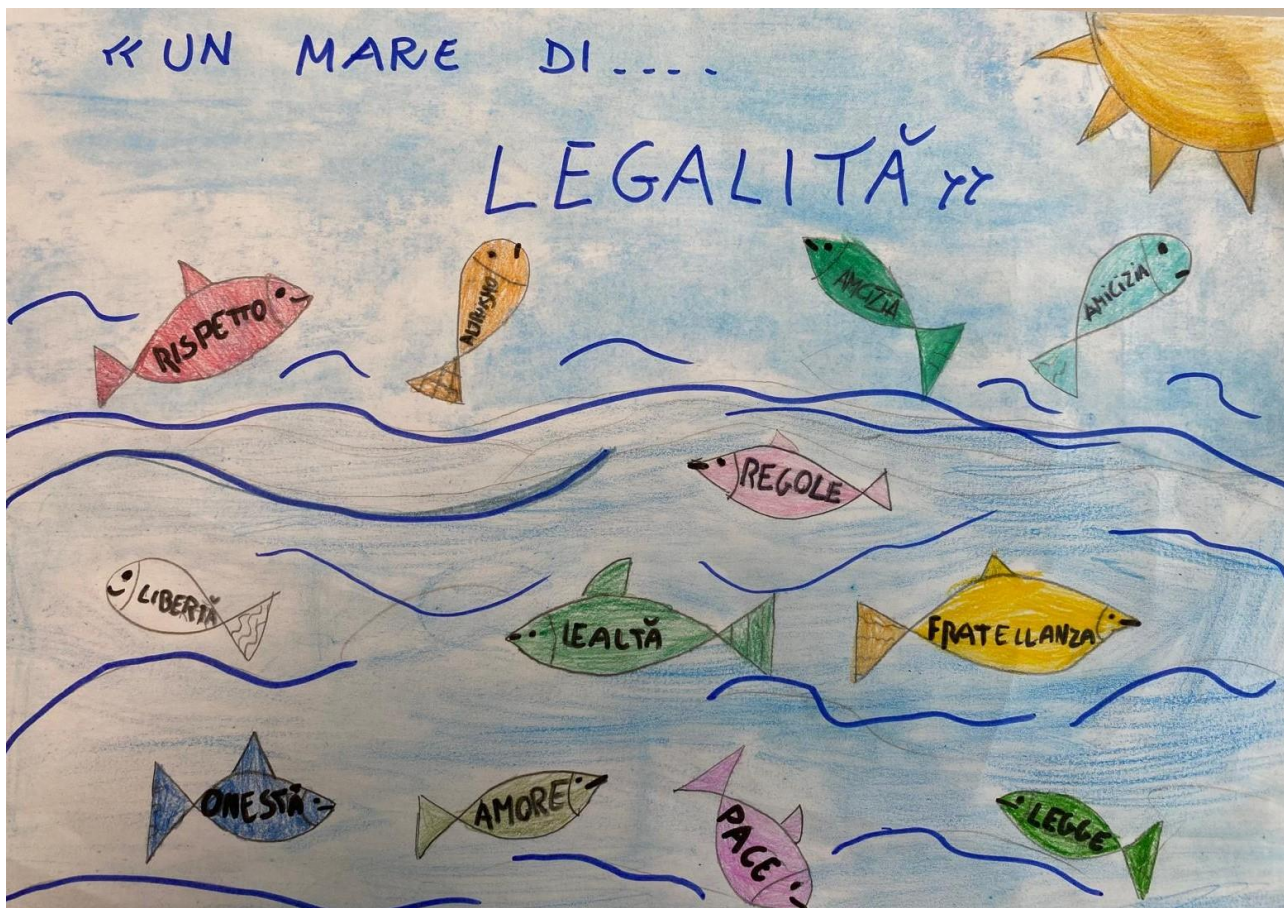 «UN MARE DI....
LEGALITÀ»
RISPETTO
ALTRUISMO
AMCIZIA
AMICIZIA
REGOLE
LIBERTÀ
LEALTÀ
FRATELLANZA
ONESTÀ
AMORE
PACE
LEGGE